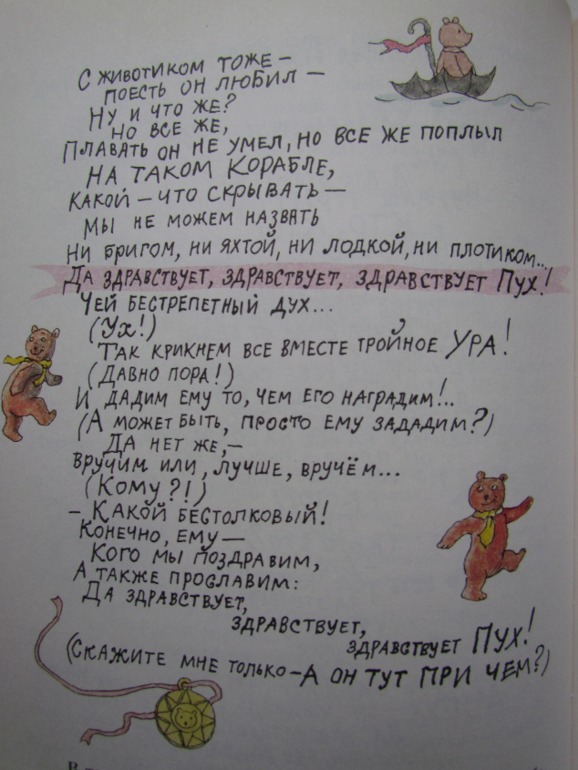 С животиком тоже —
поесть он любил —
Ну и что же?
Но все же,
Плавать он не умел, но все же поплыл
На таком корабле,
Какой — что скрывать —
Мы не можем назвать
Ни бригом, ни яхтой, ни лодкой, ни плотиком...
Да здравствует, здравствует, здравствует Пух!
Чей бестрепетный дух...
(Ух!)
Так крикнем все вместе тройное Ура!
(Давно пора!)
И дадим ему то, чем его наградим!..
(А может быть, просто ему зададим?)
Да нет же, —
вручим или, лучше, вручём...
(Кому?!)
— Какой бестолковый!
Конечно, ему —
Кого мы поздравим,
А также прославим:
Да здравствует,
здравствует,
здравствует Пух!
(Скажите мне только — А он тут при чем?)